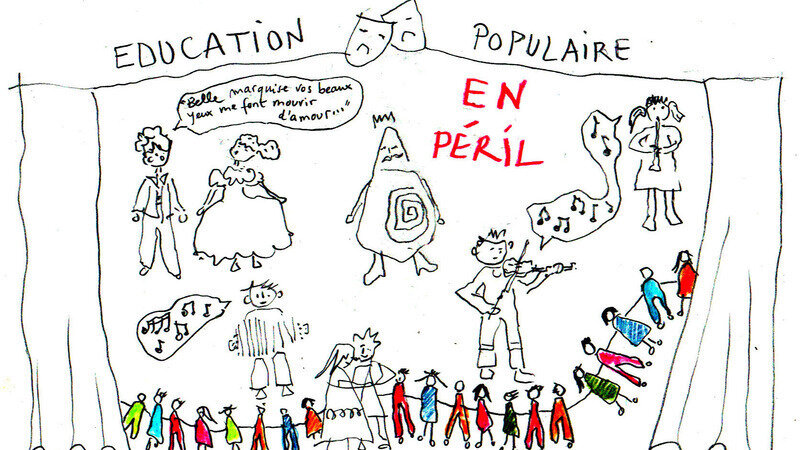 EDUCATION POPULAIRE
EN
PÉRIL
"Belle marquise vos beaux
yeux me font mourir
d'amour..."